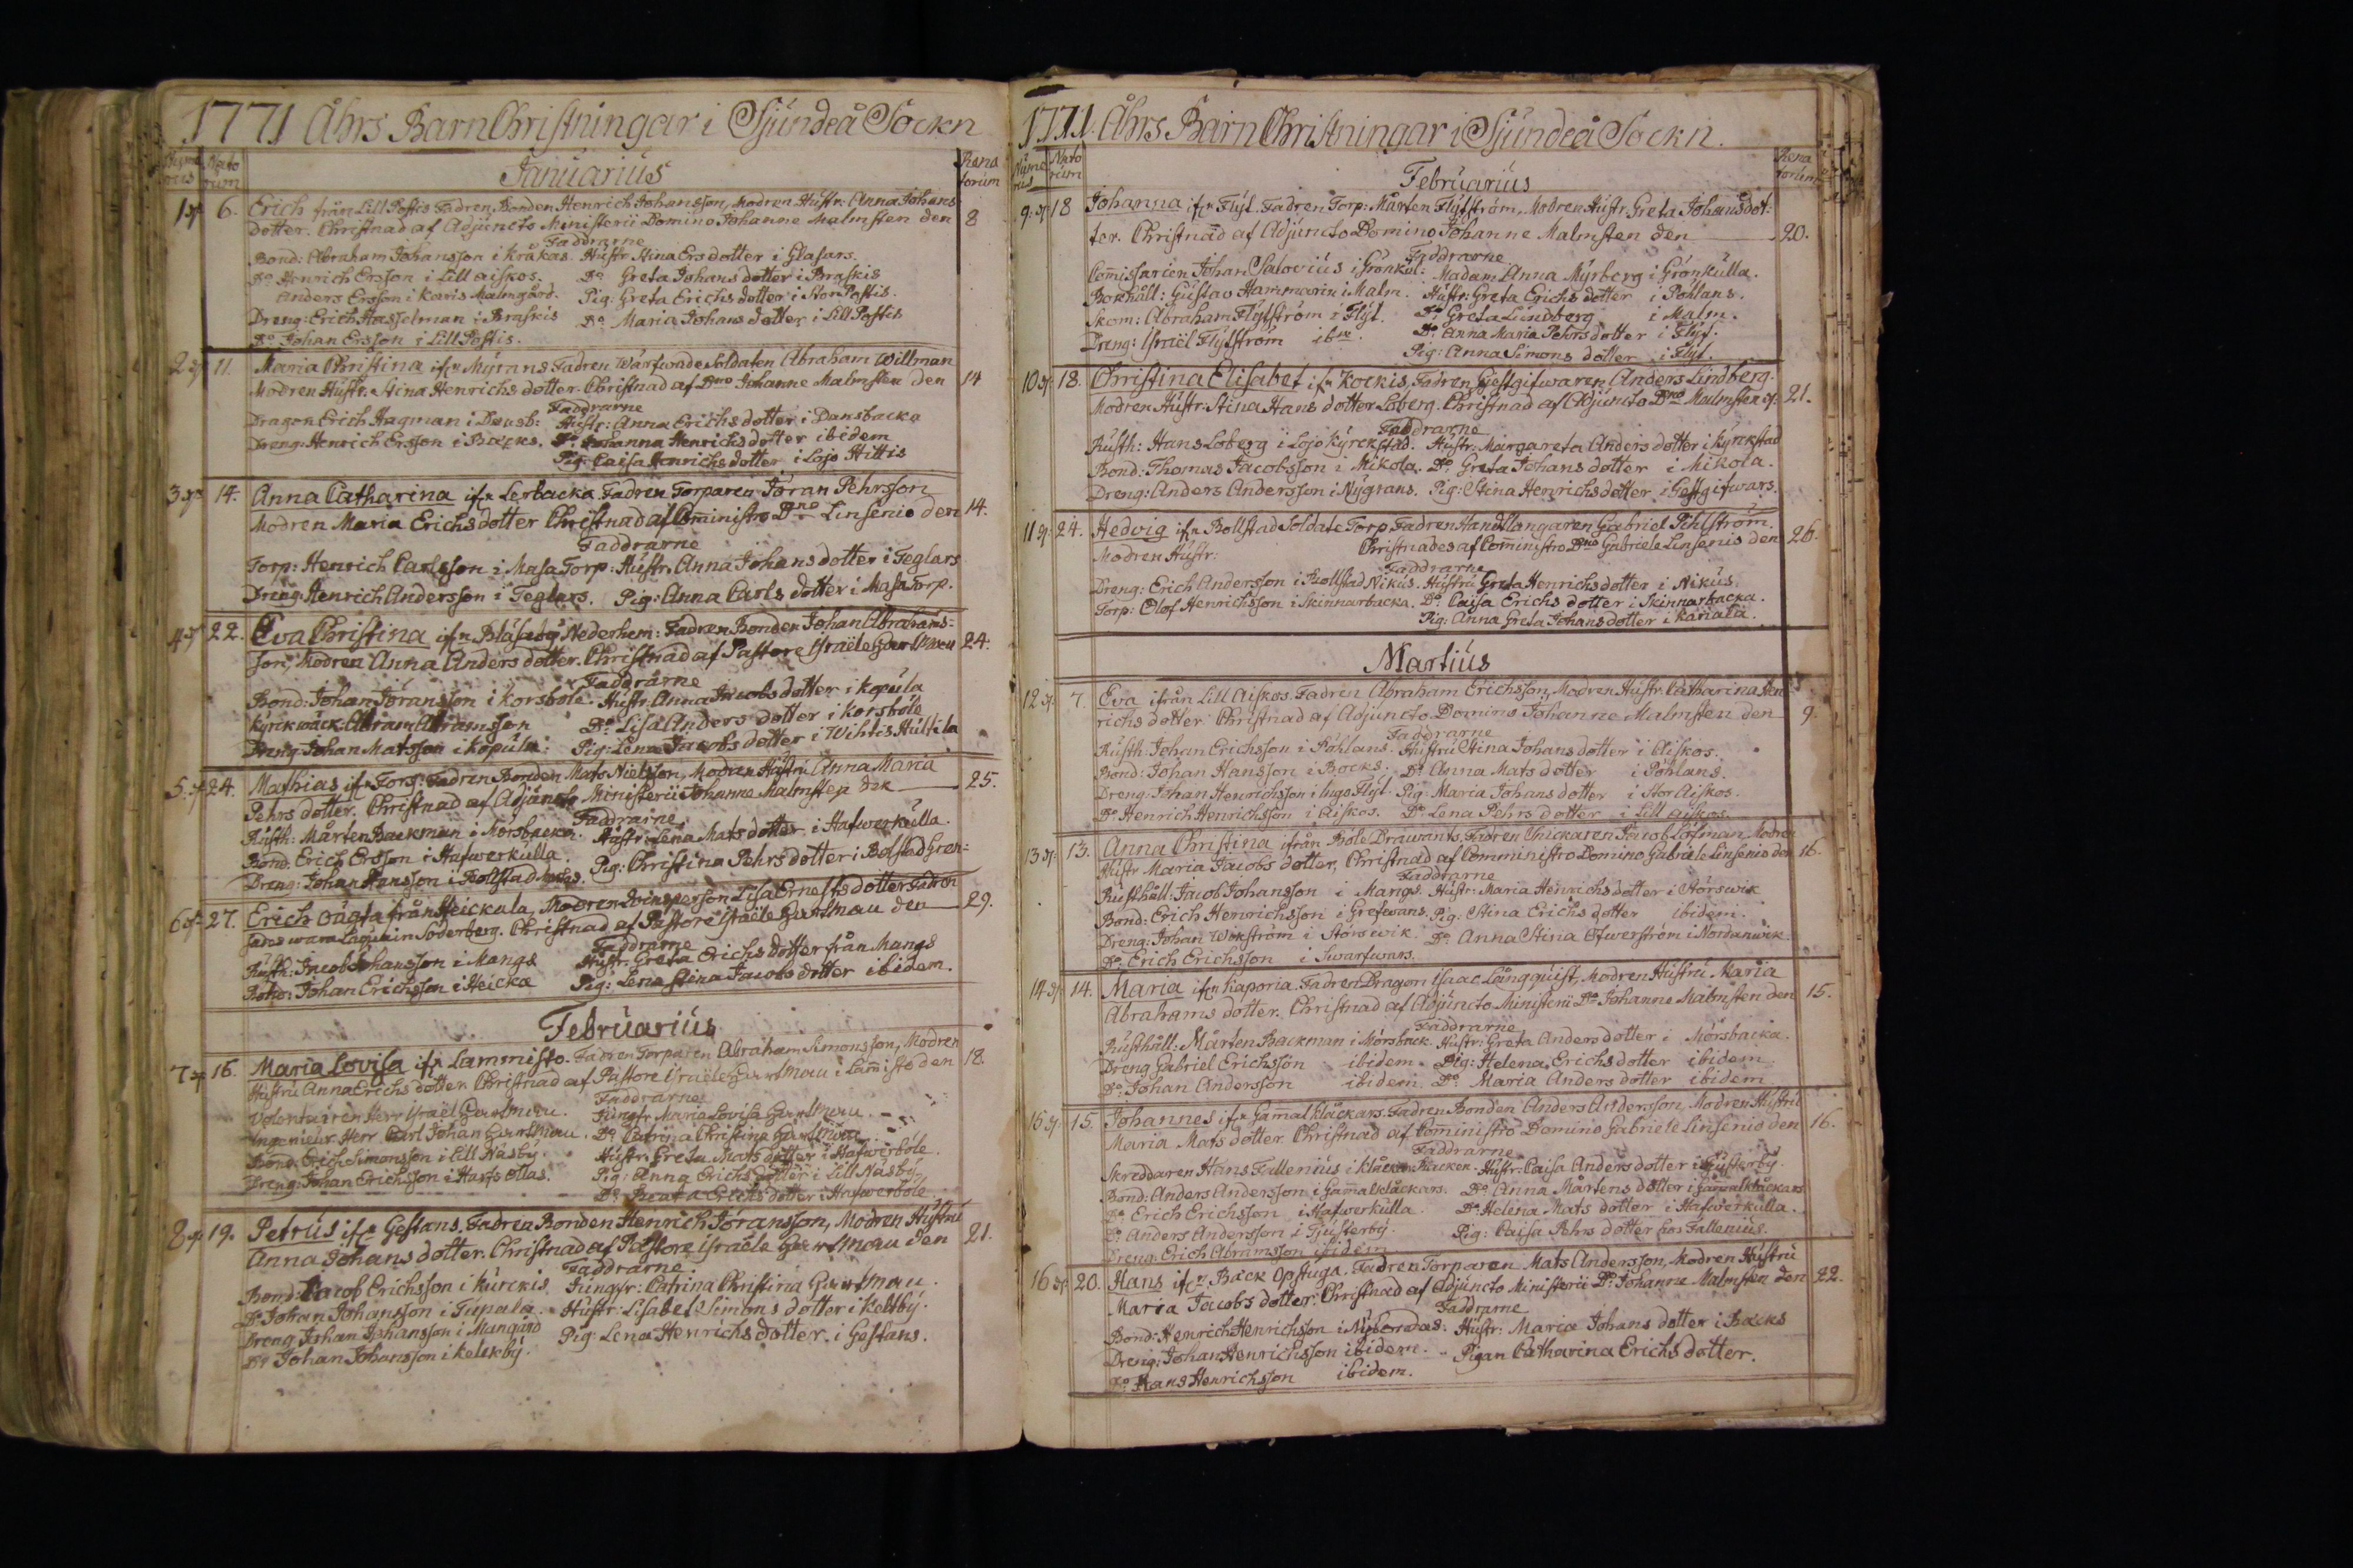 1771 Åhrs Barn Christningar i Sjundeå Sockn
Nato rum
Januarius
Rena torum
1 6. Erich från Lill Postis Fadren Bonden Henrich Johansson, Modren Hustr. Anna Johans
dotter. Christnad af Adjuncto Ministerii Domino Johanne Malmsten den 8
Faddrarne
Bond: Abraham Johansson i Kråkas. Hustr Stina Ers dotter i Glasars.
Do Henrich Ersson i Lill aiskos. Do Greta Johans dotter i Braskis
Anders Ersson i Karis Malmgård. Pig: Greta Erichs dotter i Stor Postis.
Dreng: Erich Hasselman i Braskis Do Maria Johans dotter i Lill Postis
Do Johan Ersson i Lill Postis.
2 11. Maria Christina ifr Myrans Fadren Wärfwade Soldaten Abraham Willman
Modren Hustr. Stina Henrichs dotter. Christnad af Dno Johanne Malmsten den 14
Faddrarne
Dragon Erich Hagman i Dansb: Hustr: Anna Erichs dotter i Dansbacka
Dreng: Henrich Ersson i Backs. Do Johanna Henrichs dotter ibidem
Pig: Caisa Henrichs dotter i Lojo Hittis
3 14. Anna Catharina ifr Lerbacka Fadren Torparen Jöran Pehrsson
Modren Maria Erichs dotter Christnad af Comministro Dno Linsenio den 14.
Faddrarne
Torp: Henrich Carlsson i Masa Torp: Hustr. Anna Johans dotter i Teglars
Dreng: Henrich Andersson i Teglars. Pig: Anna Carls dotter i Masa Torp.
4 22. Eva Christina ifr Blåsaby Nederhem: Fadren Bonden Johan Abrahams=
son, Modren Anna Anders dotter. Christnad af Pastore Israële 24.
Faddrarne
Bond: Johan Jöransson i Korsbole. Hustr. Anna Jacobs dotter i Kopula
Kyrkwäck: Abram Abramsson Do Lisa Anders dotter i Korsbole
Dreng: Johan Matsson i Kopula. Pig: Lena Jacobs dotter i Wihtis Hultila
5. 24. Mathias ifr Fors: Fadren Bonden Mats Nielsson, Modren Hustru Anna Maria
Pehrs dotter. Christnad af Adjuncto Ministerii Johanne Malmsten den 25.
Faddrarne
Rusth: Mårten Backman i Morsbacka. Hustr: Lena Mats dotter i Hafwerkulla.
Bond. Erich Ersson i Hafwerkulla. Pig: Christina Pehrs dotter i Bolstad Gren=
Dreng: Johan Hansson i Bollstad
6 27. Erich från Heickala, Modren Lisa Ernests dotter Fadren
Söderberg. Christnad af Pastore Israële den 29.
Faddrarne
Rusth: Jacob Johansson i Mangs Hustr: Greta Erichs dotter från Mangs
Bond: Johan Erichsson i Heicka Pig: Lena Stina Jacobs dotter ibidem.
Februarius
7 16. Maria Lovisa ifr Lammisto. Fadren Torparen Abraham Simonsson, Modren
Hustru Anna Erichs dotter. Christnad af Pastore Israële i Lammisto den 18.
Faddrarne
Volontairen Herr Israël Jungfr Maria Lovisa
Ingenieur Herr Carl Johan Do Catrina Christina
Bond: Erich Simonsson i Lill Näsby. Hustr: Greta Mats dotter i Hafwerbole.
Dreng: Johan Erichsson i Harfs Ollas. Pig: Anna Erichs dotter i Lill Näsby
Do Beata Erichs dotter i Hafwerbole
8 19. Petrus ifr Gestans, Fadren Bonden Henrich Jöransson, Modren Hustru
Anna Johans dotter. Christnad af Pastore Israële den 21.
Faddrarne
Bond: Jacob Erichsson i Kurckis, Jungfr: Catrina Christina
Do Johan Johansson i Tupala. Hustr: Lisabet Simons dotter i Kelkby.
Dreng Johan Johansson i Mungård Pig: Lena Henrichs dotter. i Gestans.
Do Johan Johansson i Kelckby.
1771. Åhrs Barn Christningar i Sjundeå Sockn.
Nume rus
Nato rum
Februarius
Rena torum
9. 18 Johanna ifr Flyt. Fadren Torp: Mårten Flytström, Modren Hustr. Greta Johans dot:
ter. Christnad af Adjuncto Domino Johanne Malmsten den 20.
Faddrarne
Commissarien Johan Salovius i Grönkul: Madam: Anna Myrberg i Grönkulla.
Bokhåll: Gustav Hammarin i Malm. Hustr: Greta Erichs dotter i Pohlans.
Skom: Abraham Flytström i Flyt. Do Greta Lundberg i Malm.
Dreng: Israël Flytström ib Do Anna Maria Pehrs dotter i Flyt.
Pig: Anna Simons dotter i Flyt.
10 18. Christina Elisabet ifr Kockis, Fadren Gestgifwaren Anders Lindberg.
Modren Hustr: Stina Hans dotter Loberg. Christnad af Adjuncto Dno Malmsten 21.
Faddrarne
Rusth: Hans Loberg i Lojo Kyrckstad. Hustr: Margareta Anders dotter i Kyrckstad
Bond: Thomas Jacobsson i Mikola. Do Greta Johans dotter i Mikola.
Dreng: Anders Andersson i Nygrans. Pig: Stina Henrichs dotter i Gestgifwars.
11 24. Hedvig ifr Bollstad Soldate Torp. Fadren Handtlangaren Gabriel Pihlström.
Modren Hustr: Christnades af Comministro Dno Gabriele Linsenio den 26.
Faddrarne
Dreng: Erich Andersson i Bollstad Nikus. Hustru Greta Henrichs dotter i Nikus.
Torp: Olof Henrichsson i Skinnarbacka. Do Caisa Erichs dotter i Skinnarbacka.
Pig: Anna Greta Johans dotter i Kariala.
Martius
12 7. Eva ifrån Lill Aiskos. Fadren Abraham Erichsson, Modren Hustr. Catharina Hen
richs dotter Christnad af Adjuncto Domino Johanne Malmsten den 9.
Faddrarne
Rusth: Johan Erichsson i Pohlans. Hustru Stina Johans dotter i Aiskos.
Bond: Johan Hansson i Bocks. Do Anna Mats dotter i Pohlans.
Dreng: Johan Henrichsson i Ingo Flyt. Pig: Maria Johans dotter i Stor Aiskos.
Do Henrich Henrichsson i Aiskos. Do Lena Pehrs dotter i Lill aiskos.
13 13. Anna Christina ifrån Böle Brawants, Fadren Snickaren Jacob Löfman, Modren
Hustr Maria Jacobs dotter, Christnad af Comministro Domino Gabriele Linsenio den 16.
Faddrarne
Rusthåll: Jacob Johansson i Mangs. Hustr: Maria Henrichs dotter i Störswik
Bond: Erich Henrichsson i Grefwans. Pig: Stina Erichs dotter ibidem.
Dreng: Johan Wikström i Störswik Do Anna Stina Öfwerström i Nordanwik.
Do Erich Erichsson i Swartwars.
14 14. Maria ifr Kaporia. Fadren Dragon Isaac Långquist, Modren Hustru Maria
Abrahams dotter. Christnad af Adjuncto Ministerii Do Johanne Malmsten den 15.
Faddrarne
Rusthåll: Mårten Backman i Mörsback. Hustr: Greta Anders dotter i Mörsbacka.
Dreng Gabriel Erichsson ibidem. Pig: Helena Erichs dotter ibidem.
Do Johan Andersson ibidem. Do Maria Anders dotter ibidem
15 15. Johannes ifr Gamalkläckars. Fadren Bonden Anders Andersson, Modren Hustru
Maria Mats dotter. Christnad af Comministro Domino Gabriele Linsenio den 16.
Faddrarne
Skreddaren Hans Fallenius i Hustr: Caisa Anders dotter i Tjusterby.
Bond: Anders Andersson i Gamalkläckars. Do Anna Mårtens dotter i Gamalkläckars
Do Erich Erichsson i Hafwerkulla. Do Helena Mats dotter i Hafwerkulla.
Do Anders Andersson i Tjusterby. Pig: Caisa Pehrs dotter hos Fallenius.
Dreng: Erich Abramsson ibidem
16 20. Hans ifr Bäck Opstuga. Fadren Torparen Mats Andersson, Modren Hustru
Maria Jacobs dotter. Christnad af Adjuncto Ministerii Do Johanne Malmsten den 22.
Faddrarne
Bond: Henrich Henrichsson i Hustr: Maria Johans dotter i Backs
Dreng: Johan Henrichsson ibidem. Pigan Catharina Erichs dotter.
Do Hans Henrichsson ibidem.